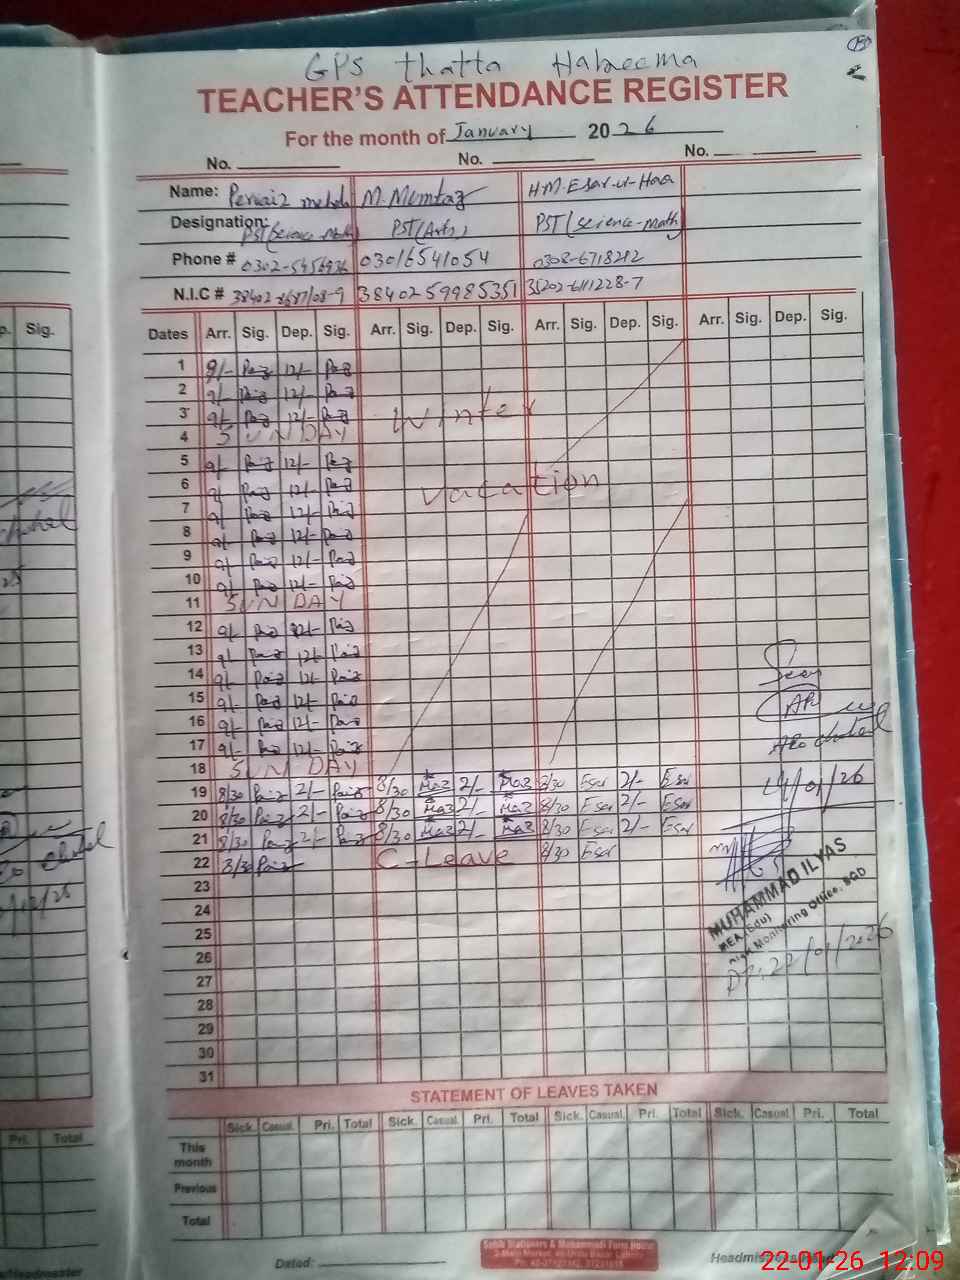 GPS thatta Habeema
TEACHER'S ATTENDANCE REGISTER
For the month of January 2026
No. No. No.
Name: Pervaiz mehdi M. Mumtaz H.M. Esar-ul-Haq
Designation: PST(Science-Math) PST(Arts) PST(Science-math)
Phone # 0302-5456936 03016541054 0308-6718212
N.I.C # 3840259985351 35202-6111228-7
Dates Arr. Sig. Dep. Sig. Arr. Sig. Dep. Sig. Arr. Sig. Dep. Sig. Arr. Sig. Dep. Sig.
1 9/- Paiz 12/- Paiz
2 9/- Paiz 12/- Paiz
3 9/- Paiz 12/- Paiz Winter
4 SUNDAY
5 9/- Paiz 12/- Paiz
6 9/- Paiz 12/- Paiz vacation
7 9/- Paiz 12/- Paiz
8 9/- Paiz 12/- Paiz
9 9/- Paiz 12/- Paiz
10 9/- Paiz 12/- Paiz
11 SUNDAY
12 9/- Paiz 12/- Paiz
13 9/- Paiz 12/- Paiz
14 9/- Paiz 12/- Paiz
15 9/- Paiz 12/- Paiz
16 9/- Paiz 12/- Paiz
17 9/- Paiz 12/- Paiz
18 SUNDAY
19 8/30 Paiz 2/- Paiz 8/30 Maz 2/- Maz 8/30 Esar 2/- Esar
20 8/30 Paiz 2/- Paiz 8/30 Maz 2/- Maz 8/30 Esar 2/- Esar
21 8/30 Paiz 2/- Paiz 8/30 Maz 2/- Maz 8/30 Esar 2/- Esar
22 8/30 Paiz C-Leave 8/30 Esar
23
24
25
26
27
28
29
30
31
Seen
AEO
/01/26
MUHAMMAD ILYAS
MEA (Edu)
Monitoring Office, SGD
DT. 22/01/2026
STATEMENT OF LEAVES TAKEN
Sick. Casual. Pri. Total Sick. Casual. Pri. Total Sick. Casual. Pri. Total Sick. Casual. Pri. Total
This month
Previous
Total
Sahib Stationers & Muhammadi Form House
Dated: Headmistress/Head
22-01-26 12:09
Dep. Sig.
Pri. Total
Headmaster